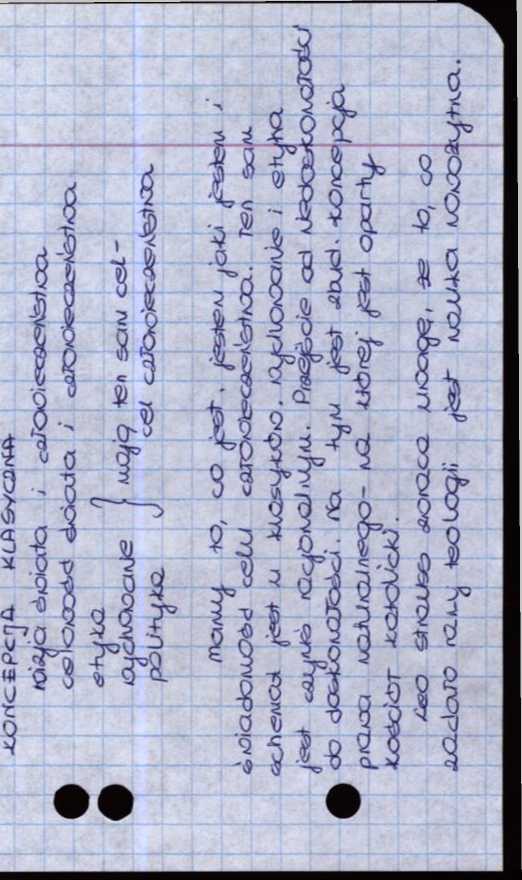 KONCEPCJA KLASYCZNA
wizja świata i człowieczeństwa
celowość świata i człowieczeństwa
etyka
wychowanie } mają ten sam cel-
polityka cel człowieczeństwa
mamy to, co jest, jestem jaki jestem i
świadomość celu człowieczeństwa. Ten sam
schemat jest u klasyków. wychowanie i etyka
jest czymś racjonalnym. Przejście od niedoskonałości
do doskonałości. Na tym jest zbud. koncepcja
prawa naturalnego - na której jest oparty
kościół katolicki.
Leo Strauss zwraca uwagę, że to, co
zadało rany teologii jest nauka nowożytna.